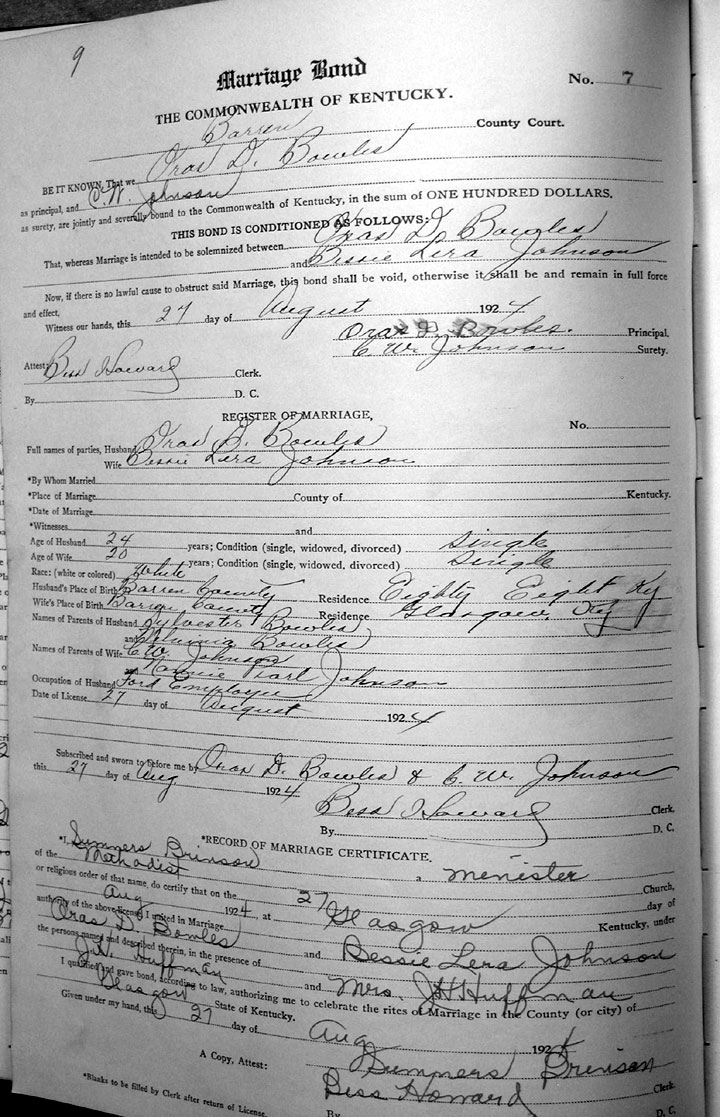 9
Marriage Bond
No. 7
THE COMMONWEALTH OF KENTUCKY.
Barren County Court.
BE IT KNOWN, That we Oras D. Bowles
as principal, and C. W. Johnson
as surety, are jointly and severally bound to the Commonwealth of Kentucky, in the sum of ONE HUNDRED DOLLARS.
THIS BOND IS CONDITIONED AS FOLLOWS:
That, whereas Marriage is intended to be solemnized between Oras D. Bowles
and Bessie Lera Johnson
Now, if there is no lawful cause to obstruct said Marriage, this bond shall be void, otherwise it shall be and remain in full force
and effect,
Witness our hands, this 27 day of August 1924
Oras D. Bowles. Principal.
C. W. Johnson Surety.
Attest: Bess Howard Clerk.
By D. C.
REGISTER OF MARRIAGE, No.
Full names of parties, Husband Oras D. Bowles
Wife Bessie Lera Johnson
*By Whom Married
*Place of Marriage County of Kentucky.
*Date of Marriage
*Witnesses and
Age of Husband 24 years; Condition (single, widowed, divorced) Single
Age of Wife 20 years; Condition (single, widowed, divorced) Single
Race: (white or colored) White
Husband's Place of Birth Barren County Residence Eighty Eight Ky
Wife's Place of Birth Barren County Residence Glasgow, Ky
Names of Parents of Husband Sylvester Bowles
and Bowles
Names of Parents of Wife C W. Johnson
and Nannie Pearl Johnson
Occupation of Husband Ford Employee
Date of License 27 day of August 1924
Subscribed and sworn to before me by Oras D. Bowles & C. W. Johnson
this 27 day of Aug 1924
Bess Howard Clerk.
By D. C.
*RECORD OF MARRIAGE CERTIFICATE.
*I Summers Brinson a menister
of the Mathodist Church,
or religious order of that name, do certify that on the 27 day of
Aug 1924 at Glasgow Kentucky, under
authority of the above license I united in Marriage
Oras D Bowles and Bessie Lera Johnson
the persons named and described therein, in the presence of
J. H. Huffman and Mrs. J H Huffman
I qualified and gave bond, according to law, authorizing me to celebrate the rites of Marriage in the County (or city) of
Glasgow State of Kentucky.
Given under my hand, this 27 day of Aug 1924
Summers Brinson
A Copy, Attest: Bess Howard Clerk.
By D. C.
*Blanks to be filled by Clerk after return of License.